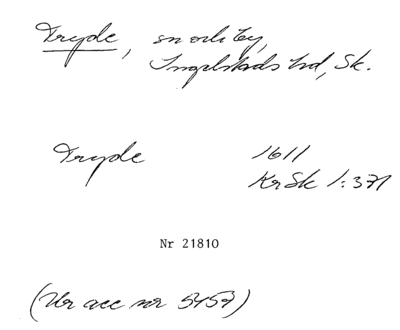 Tryde, sn och by,
Ingelstads hd, Sk.
Tryde 1611
KrSk 1:371
Nr 21810
(Ur acc nr 5457)